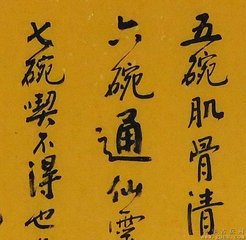 五碗肌骨清
六碗通仙靈
七碗喫不得也